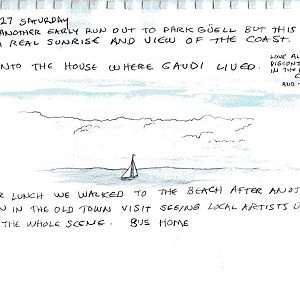 27 SATURDAY
ANOTHER EARLY RUN OUT TO PARK GÜELL BUT THIS
REAL SUNRISE AND VIEW OF THE COAST.
INTO THE HOUSE WHERE GAUDI LIVED.
LOVE AL
PIGEONS
IN THE
LUNCH WE WALKED TO THE BEACH AFTER ANOT
IN THE OLD TOWN VISIT SEEING LOCAL ARTISTS
THE WHOLE SCENE. BUS HOME